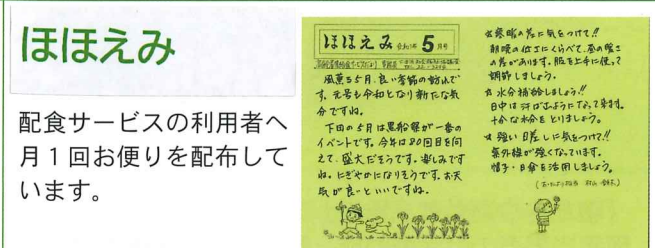 ほほえみ
配食サービスの利用者へ
月1回お便りを配布して
います。
ほほえみ 令和元年 5月号
風薫る5月、良い季節の訪れで
す。元号も令和となり新たな気
分ですね。
下田の5月は黒船祭が一番の
イベントです。今年は80回目を向
えて、盛大だそうです。楽しみです
ね。にぎやかになりそうです。お天
気が良いといいですね。
☆寒暖の差に気をつけて!!
朝晩の
の差があります。服を上手に使って
調節しましょう。
☆水分補給しましょう!!
日中は汗ばむようになって来ます。
十分な水分をとりましょう。
☆強い日差しに気をつけて!!
紫外線が強くなっています。
帽子・日傘を活用しましょう。